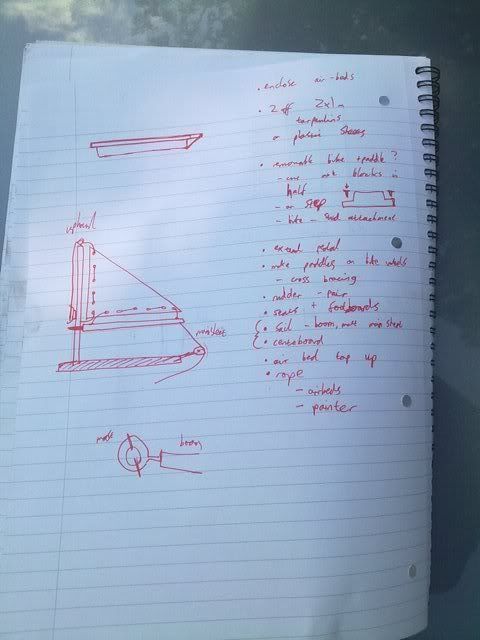 • enclose air-beds
• 2 off 2x1m
tarpaulins
or plastic sheets
• removable bike + paddle?
- cut out blocks in
half
- or STEP
- bike - seat attachment
• extend pedal
• make paddles on bike wheels
- cross bracing
• rudder - pair
• seats + footboards
• Sail - boom, mast, main sheet
• centreboard
• air bed top up
• rope
- airbeds
- painter
uphaul
mainsheet
mast
boom